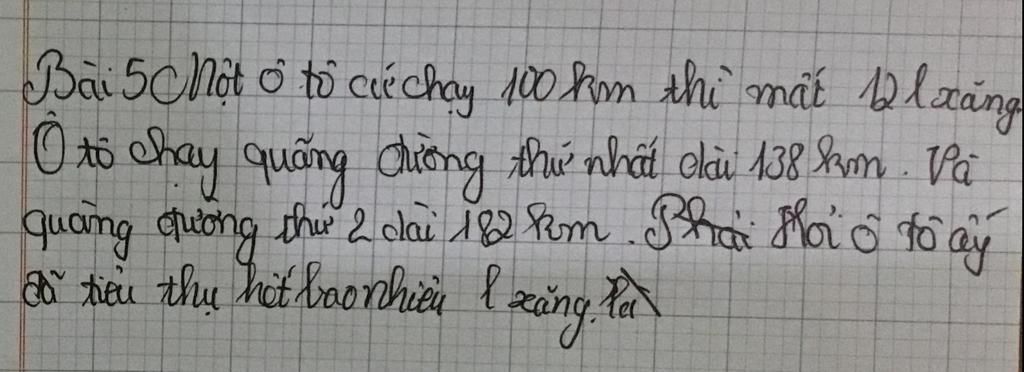 Bài 5 Một ô tô cứ chạy 100 km thì mất 12 l xăng.
Ô tô chạy quãng đường thứ nhất dài 138 km. Và
quãng đường thứ 2 dài 182 km. hỏi ô tô ấy
đã tiêu thụ hết bao nhiêu l xăng.